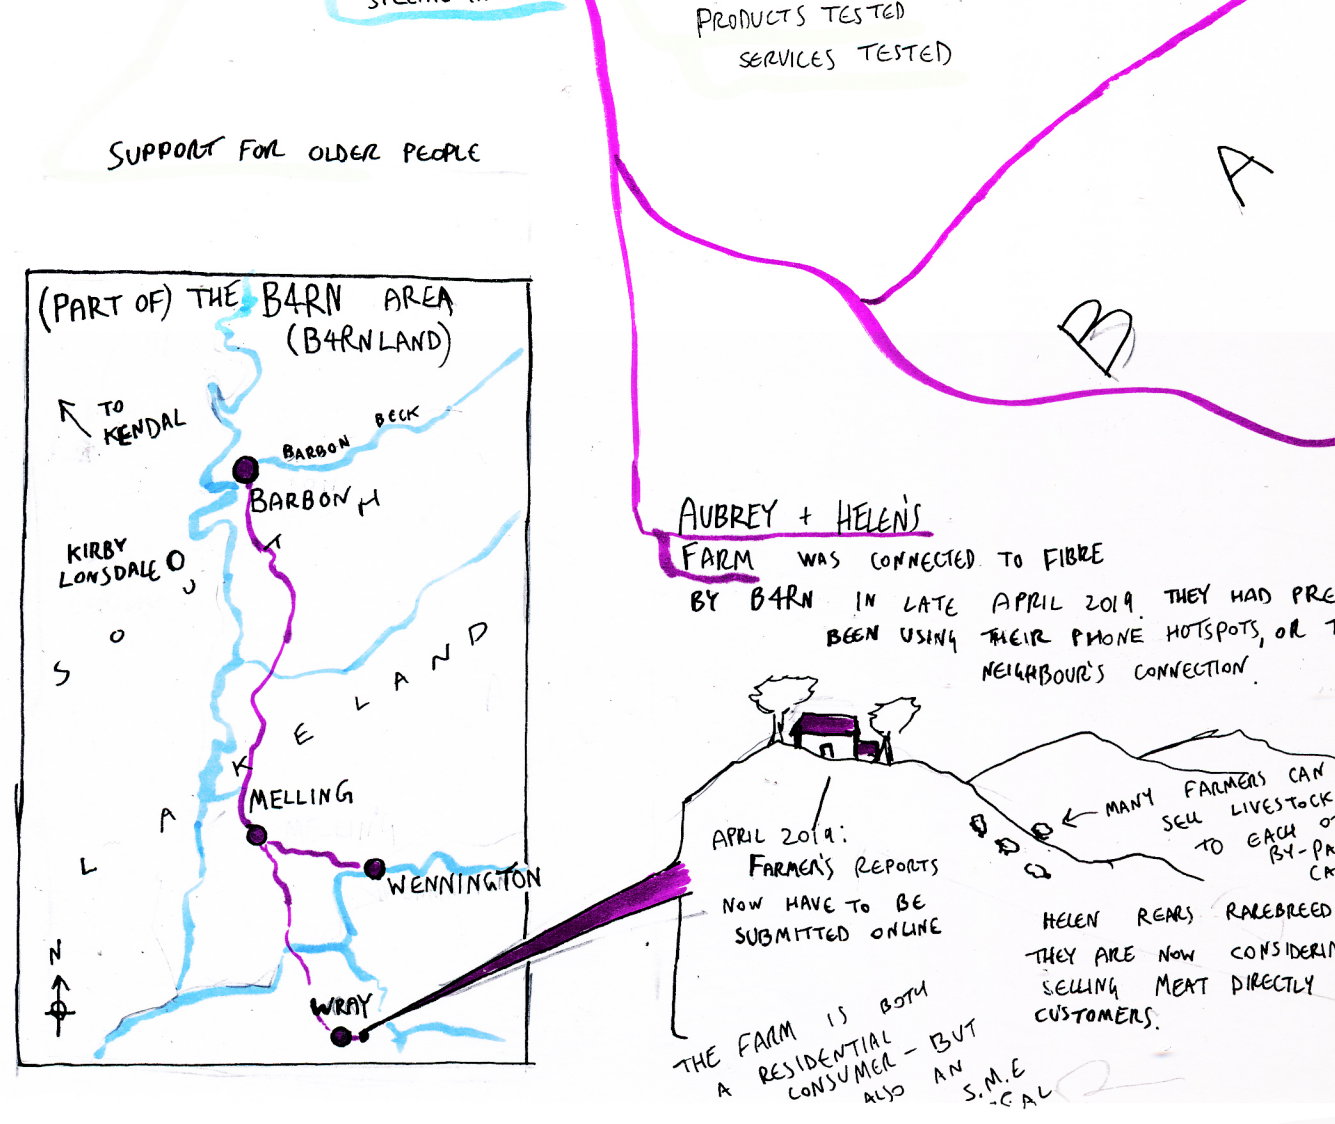 PRODUCTS TESTED
SERVICES TESTED
SUPPORT FOR OLDER PEOPLE
A
B
(PART OF) THE B4RN AREA
(B4RNLAND)
TO
KENDAL
BARBON BECK
BARBON
KIRBY
LONSDALE
SOUTH
LAKELAND
MELLING
WENNINGTON
N
WRAY
AUBREY + HELEN'S
FARM WAS CONNECTED TO FIBRE
BY B4RN IN LATE APRIL 2019. THEY HAD PRE
BEEN USING THEIR PHONE HOTSPOTS, OR T
NEIGHBOUR'S CONNECTION.
MANY FARMERS CAN
SELL LIVESTOCK
TO EACH O
BY-PA
CA
APRIL 2019:
FARMER'S REPORTS
NOW HAVE TO BE
SUBMITTED ONLINE
HELEN REARS RAREBREED
THEY ARE NOW CONSIDERIN
SELLING MEAT DIRECTLY
CUSTOMERS.
THE FARM IS BOTH
A RESIDENTIAL
CONSUMER - BUT
ALSO AN
S.M.E